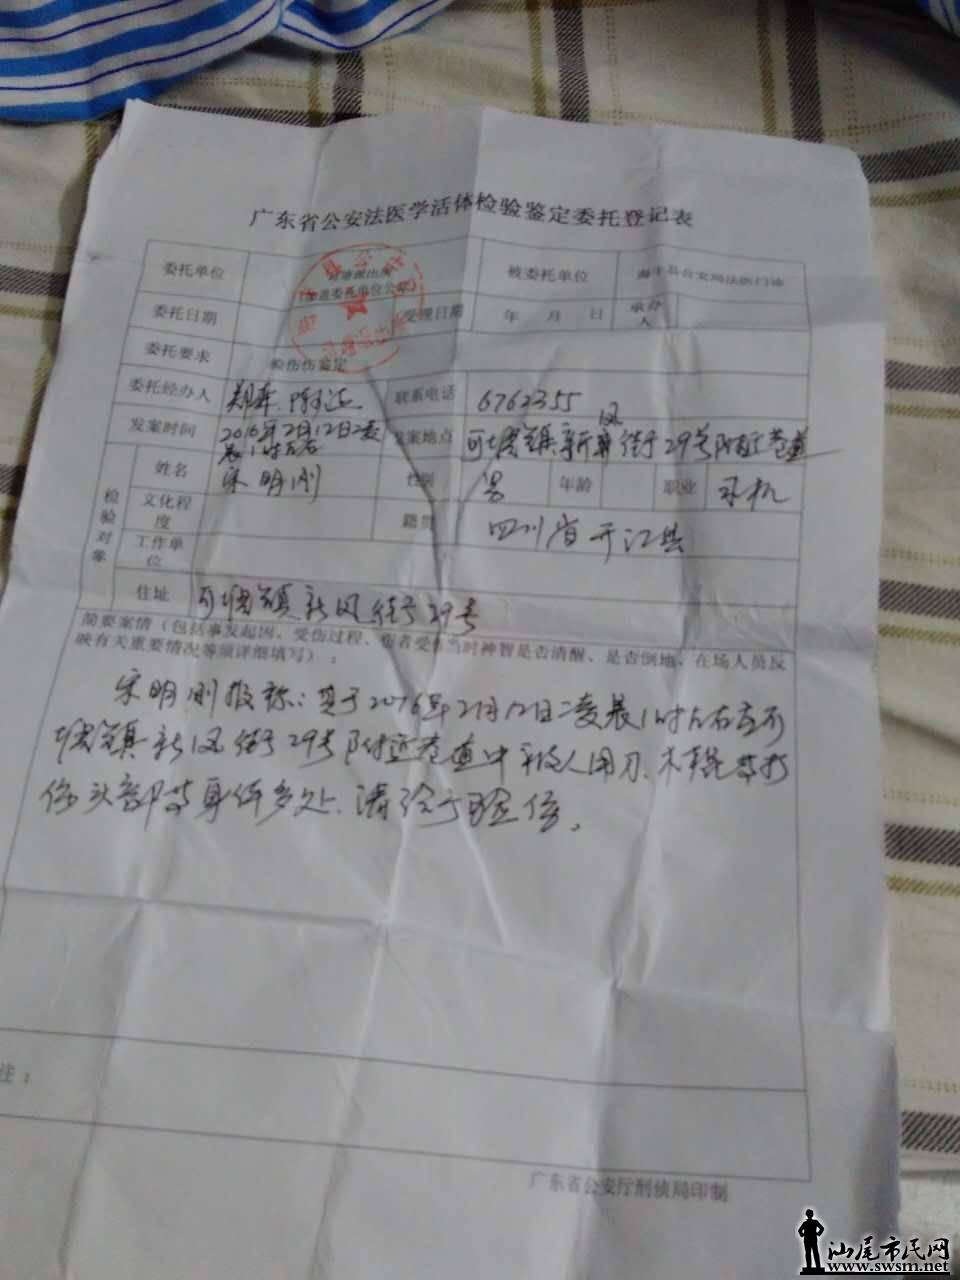 广东省公安法医学活体检验鉴定委托登记表
委托单位 可塘派出所 (加盖委托单位公章) 被委托单位 海丰县公安局法医门诊
委托日期 受理日期 年 月 日 承办人
委托要求 损伤伤鉴定
委托经办人 联系电话 6762355
发案时间 2016年2月12日凌晨1时左右 发案地点 可塘镇新风街29号附近巷道
检验对象
姓名 宋明刚 性别 男 年龄 职业 司机
文化程度 籍贯 四川省开江县
工作单位
住址 可塘镇新风街29号
简要案情(包括事发起因、受伤过程、伤者受伤当时神智是否清醒、是否倒地、在场人员反
映有关重要情况等须详细填写):
宋明刚报称:其于2016年2月12日凌晨1时左右在可
塘镇新风街29号附近巷道中被人用刀、木棍等打
伤头部等身体多处,请给予验伤。
注:
广东省公安厅刑侦局印制
汕尾市民网
www.swsm.net